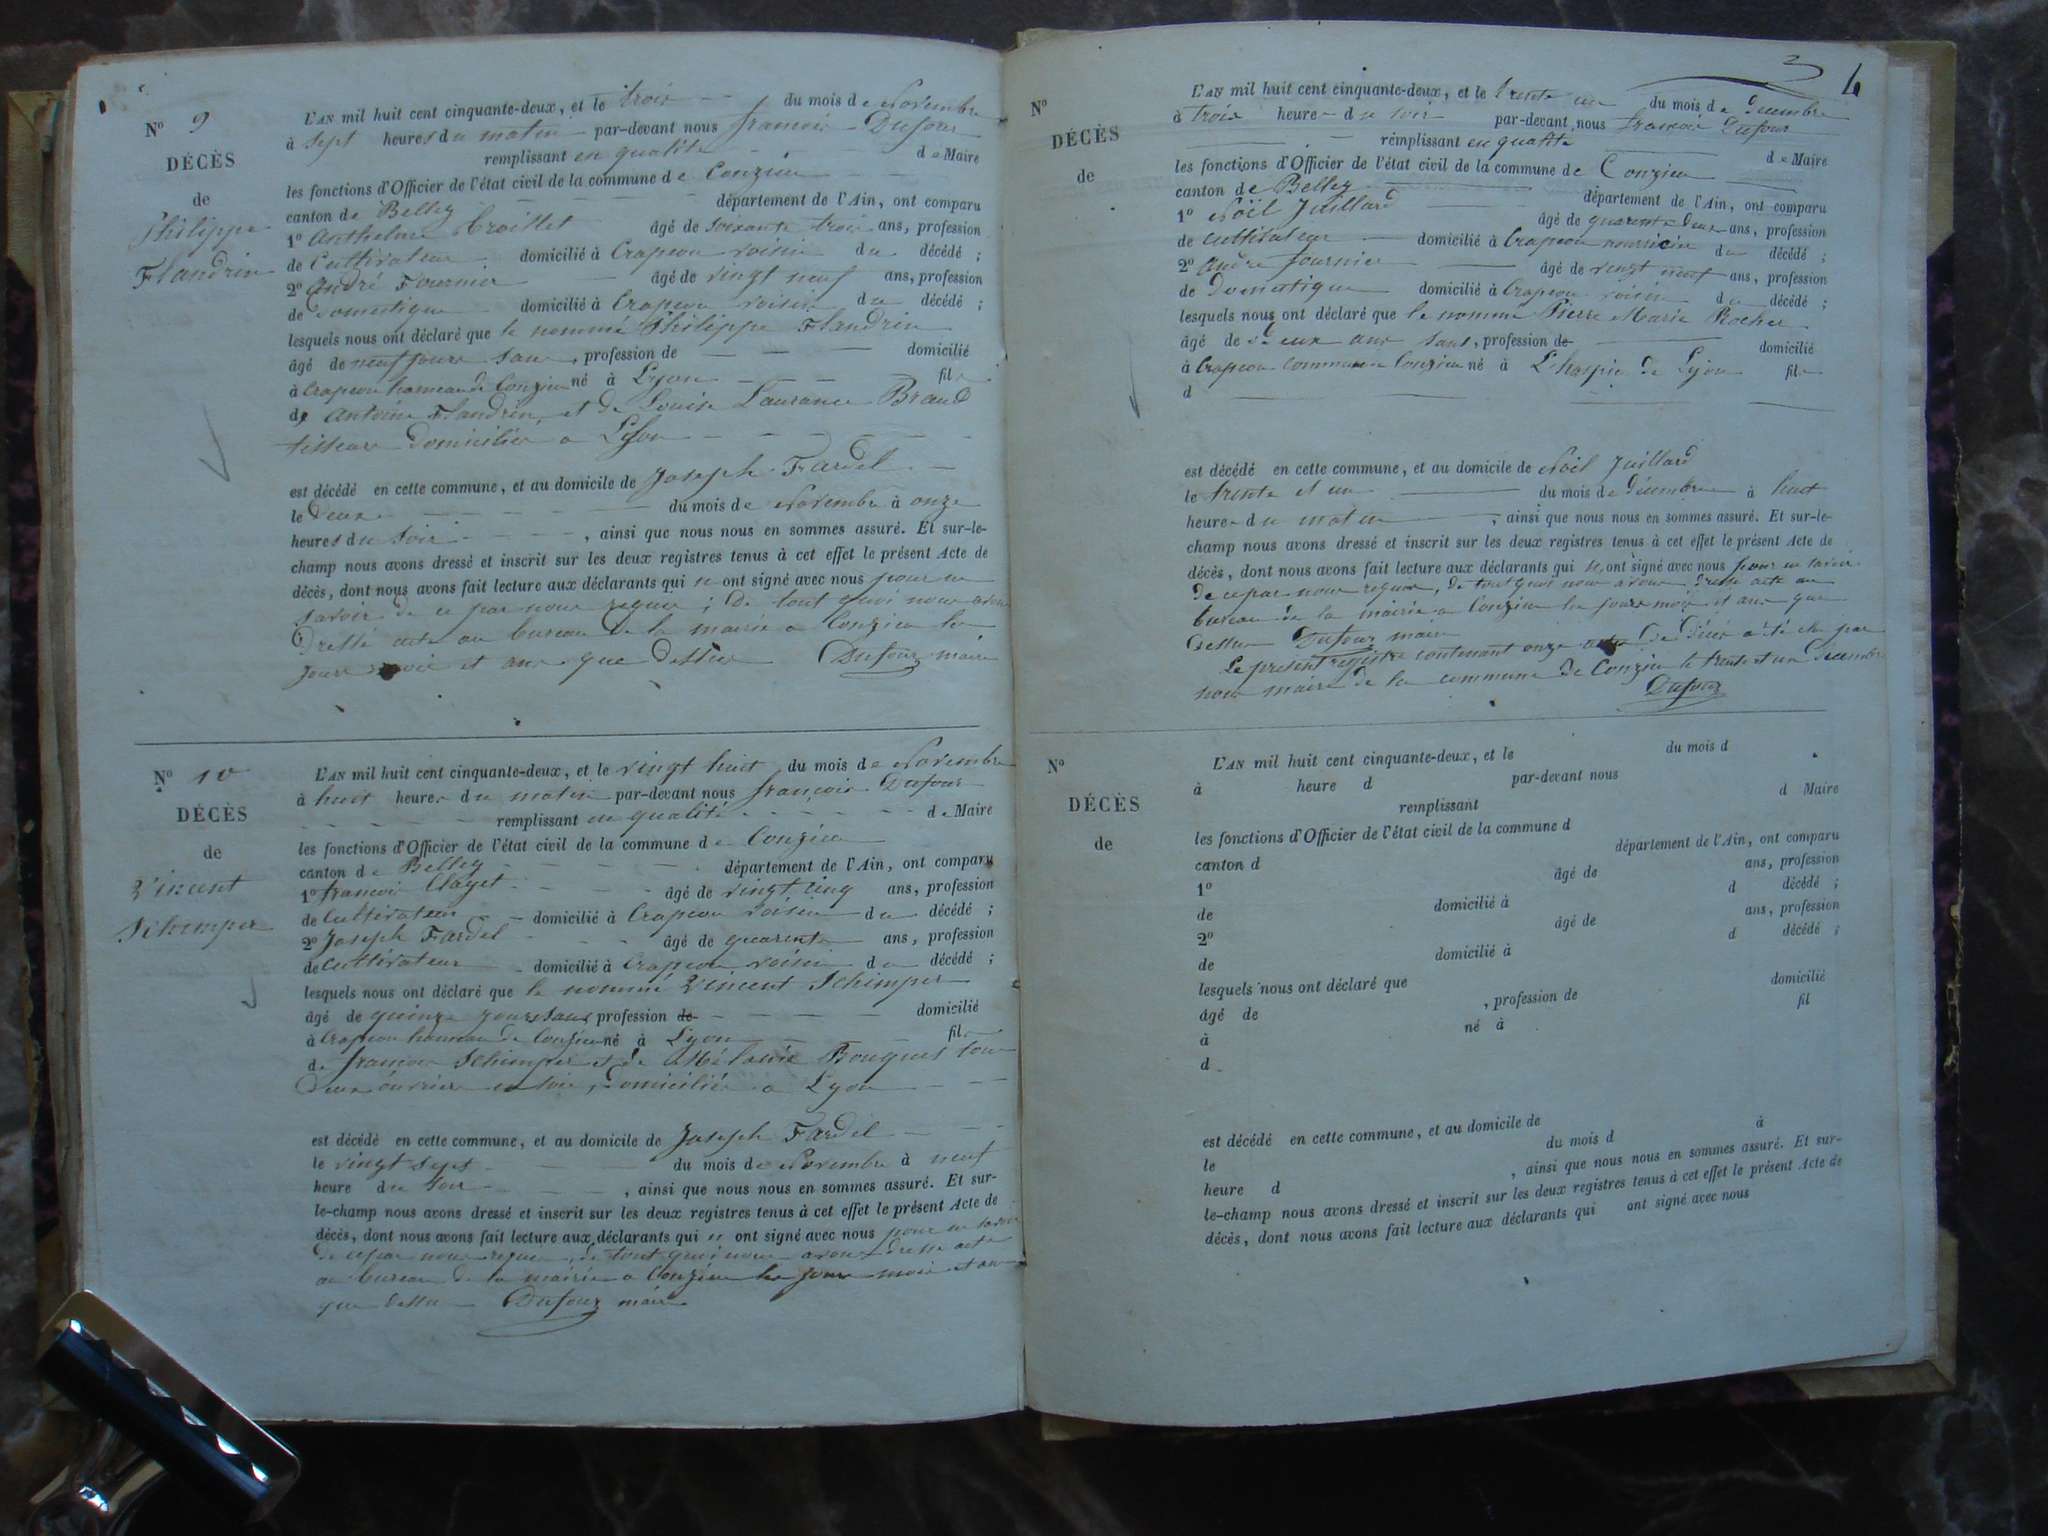 N° 9
DÉCÈS
de
Philippe
Flandrin
L'AN mil huit cent cinquante-deux, et le trois du mois de Novembre
à sept heures du matin par-devant nous françois Dufour
remplissant en qualité de Maire
les fonctions d'Officier de l'état civil de la commune de Conzieu
canton de Belley département de l'Ain, ont comparu
1° Anthelme Troillet âgé de soixante trois ans, profession
de Cultivateur domicilié à Crapeou voisin du décédé ;
2° André Fournier âgé de vingt neuf ans, profession
de domestique domicilié à Crapeou voisin du décédé ;
lesquels nous ont déclaré que le nommé Philippe Flandrin
âgé de neuf jours sans, profession de domicilié
à Crapeou hameau de Conzieu né à Lyon fils
de Antoine Flandrin, et de Louise Laurance Braud
tisseurs domiciliés a Lyon
est décédé en cette commune, et au domicile de Joseph Fardel
le deux du mois de Novembre à onze
heures du soir, ainsi que nous nous en sommes assuré. Et sur-le-
champ nous avons dressé et inscrit sur les deux registres tenus à cet effet le présent Acte de
décès, dont nous avons fait lecture aux déclarants qui n' ont signé avec nous pour ne
savoir de ce par nous requis ; de tout quoi nous avons
dressé acte au bureau de la mairie a Conzieu les
jours mois et ans que dessus Dufour maire
N° 10
DÉCÈS
de
Vincent
Schimper
L'AN mil huit cent cinquante-deux, et le vingt huit du mois de Novembre
à huit heures du matin par-devant nous françois Dufour
remplissant en qualité de Maire
les fonctions d'Officier de l'état civil de la commune de Conzieu
canton de Belley département de l'Ain, ont comparu
1° francois Clayet âgé de vingt cinq ans, profession
de Cultivateur domicilié à Crapeou voisin du décédé ;
2° Joseph Fardel âgé de quarente ans, profession
de Cultivateur domicilié à Crapeou voisin du décédé ;
lesquels nous ont déclaré que le nommé Vincent Schimper
âgé de quinze jours sans, profession de domicilié
à Crapeou hameau de Conzieu né à Lyon fils
de francois Schimper et de Mélanie Bouquet tous
deux ouvriers en soie, domiciliés a Lyon
est décédé en cette commune, et au domicile de Joseph Fardel
le vingt sept du mois de Novembre à neuf
heure du soir, ainsi que nous nous en sommes assuré. Et sur-
le-champ nous avons dressé et inscrit sur les deux registres tenus à cet effet le présent Acte de
décès, dont nous avons fait lecture aux déclarants qui n' ont signé avec nous pour ne savoir
de ce par nous requis, de tout quoi nous avons dressé acte
au bureau de la mairie a Conzieu les jours mois et an
que dessus Dufour maire
3 4
N°
DÉCÈS
de
L'AN mil huit cent cinquante-deux, et le trente un du mois de décembre
à trois heure du soir par-devant nous françois Dufour
remplissant en qualité de Maire
les fonctions d'Officier de l'état civil de la commune de Conzieu
canton de Belley département de l'Ain, ont comparu
1° Noël Juillard âgé de quarente deux ans, profession
de Cultivateur domicilié à Crapeou nourricier du décédé ;
2° André fournier âgé de vingt neuf ans, profession
de Domestique domicilié à Crapeou voisin du décédé ;
lesquels nous ont déclaré que le nommé Pierre Marie Rocher
âgé de deux ans sans, profession de domicilié
à Crapeou commune Conzieu né à L'hospice de Lyon fils
d
est décédé en cette commune, et au domicile de Noël Juillard
le trente et un du mois de décembre à huit
heure du matin, ainsi que nous nous en sommes assuré. Et sur-le-
champ nous avons dressé et inscrit sur les deux registres tenus à cet effet le présent Acte de
décès, dont nous avons fait lecture aux déclarants qui n' ont signé avec nous pour ne savoir
de ce par nous requis, de tout quoi nous avons dressé acte au
bureau de la mairie a Conzieu les jours mois et ans que
dessus Dufour maire
Le present registre contenant onze actes de décés a été clos par
nous maire de la commune de Conzieu le trente et un décembre
Dufour
N°
DÉCÈS
de
L'AN mil huit cent cinquante-deux, et le du mois d
à heure d par-devant nous
remplissant d Maire
les fonctions d'Officier de l'état civil de la commune d
canton d département de l'Ain, ont comparu
1° âgé de ans, profession
de domicilié à d décédé ;
2° âgé de ans, profession
de domicilié à d décédé ;
lesquels nous ont déclaré que
âgé de , profession de domicilié
à né à fil
d
est décédé en cette commune, et au domicile de
le du mois d à
heure d , ainsi que nous nous en sommes assuré. Et sur-
le-champ nous avons dressé et inscrit sur les deux registres tenus à cet effet le présent Acte de
décès, dont nous avons fait lecture aux déclarants qui ont signé avec nous